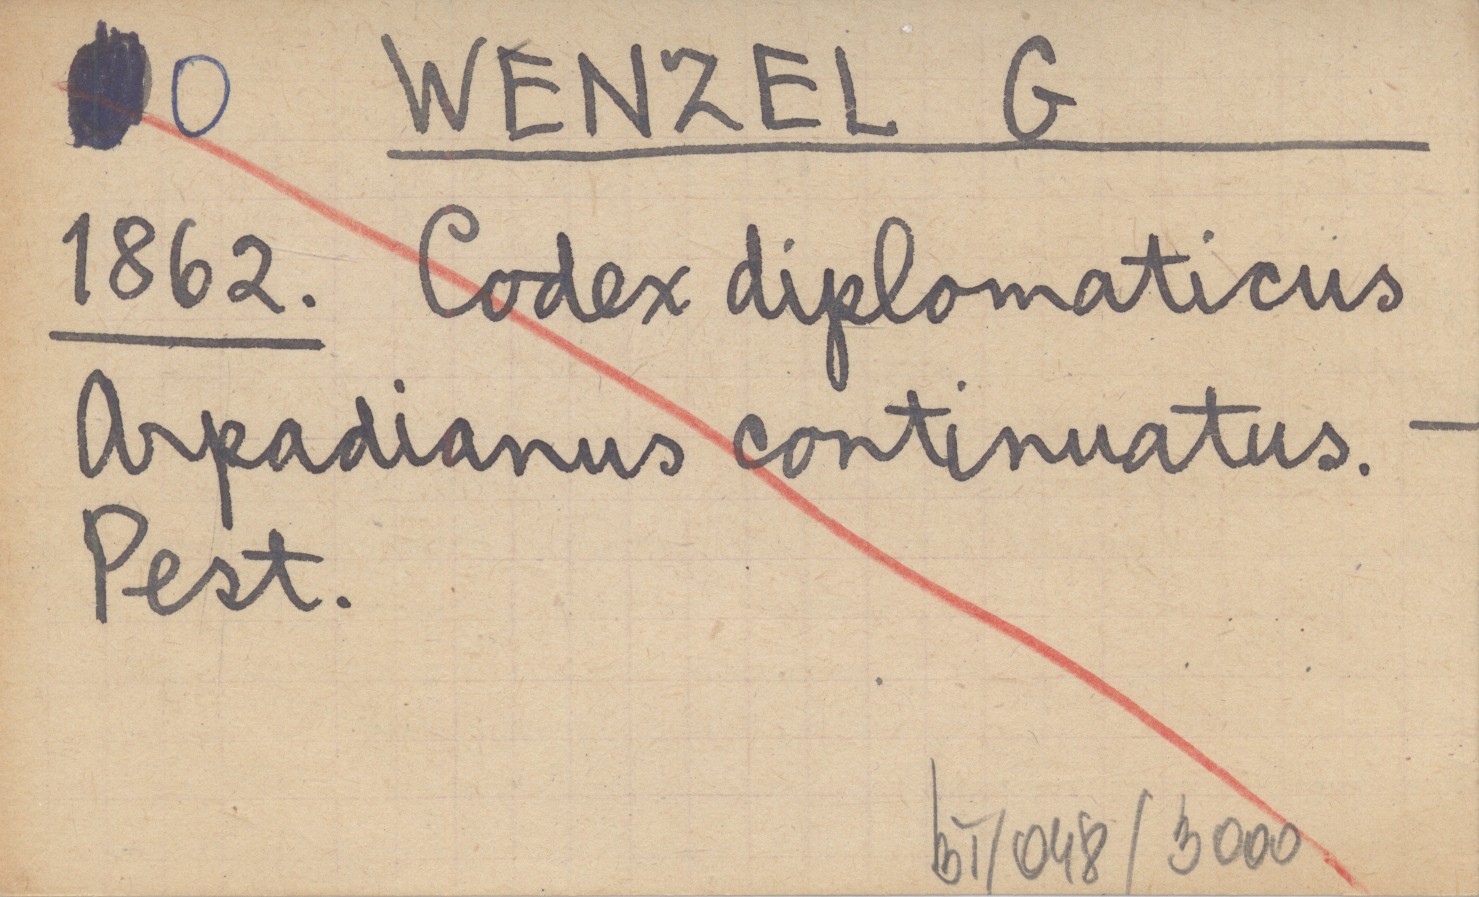 O WENZEL G
1862. Codex diplomaticus
Arpadianus continuatus. —
Pest.
bT/048/3000